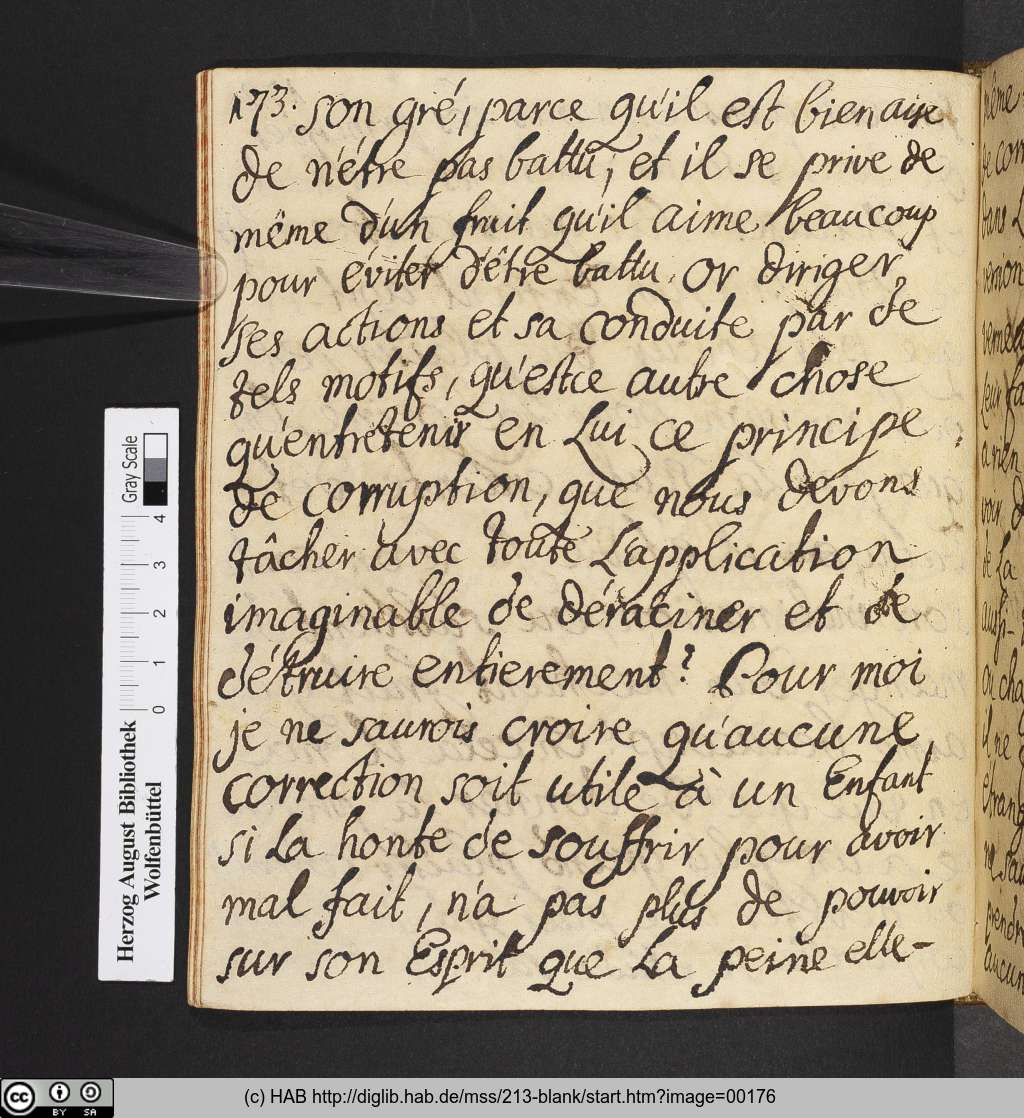 173. son gré, parce qu'il est bien aise
de n'étre pas battu, et il se prive de
même d'un fruit qu'il aime beaucoup
pour éviter d'être battu. Or diriger
ses actions et sa conduite par de
tels motifs, qu'estce autre chose
qu'entretenir en Lui ce principe
de corruption, que nous devons
tâcher avec toute L'application
imaginable de déraciner et de
détruire entierement? Pour moi
je ne saurois croire qu'aucune
correction soit utile à un Enfant
si La honte de souffrir pour avoir
mal fait, n'a pas plus de pouvoir
sur son Esprit que La peine elle-
Herzog August Bibliothek
Wolfenbüttel
Gray Scale
0 1 2 3 4
(c) HAB http://diglib.hab.de/mss/213-blank/start.htm?image=00176
cc BY SA